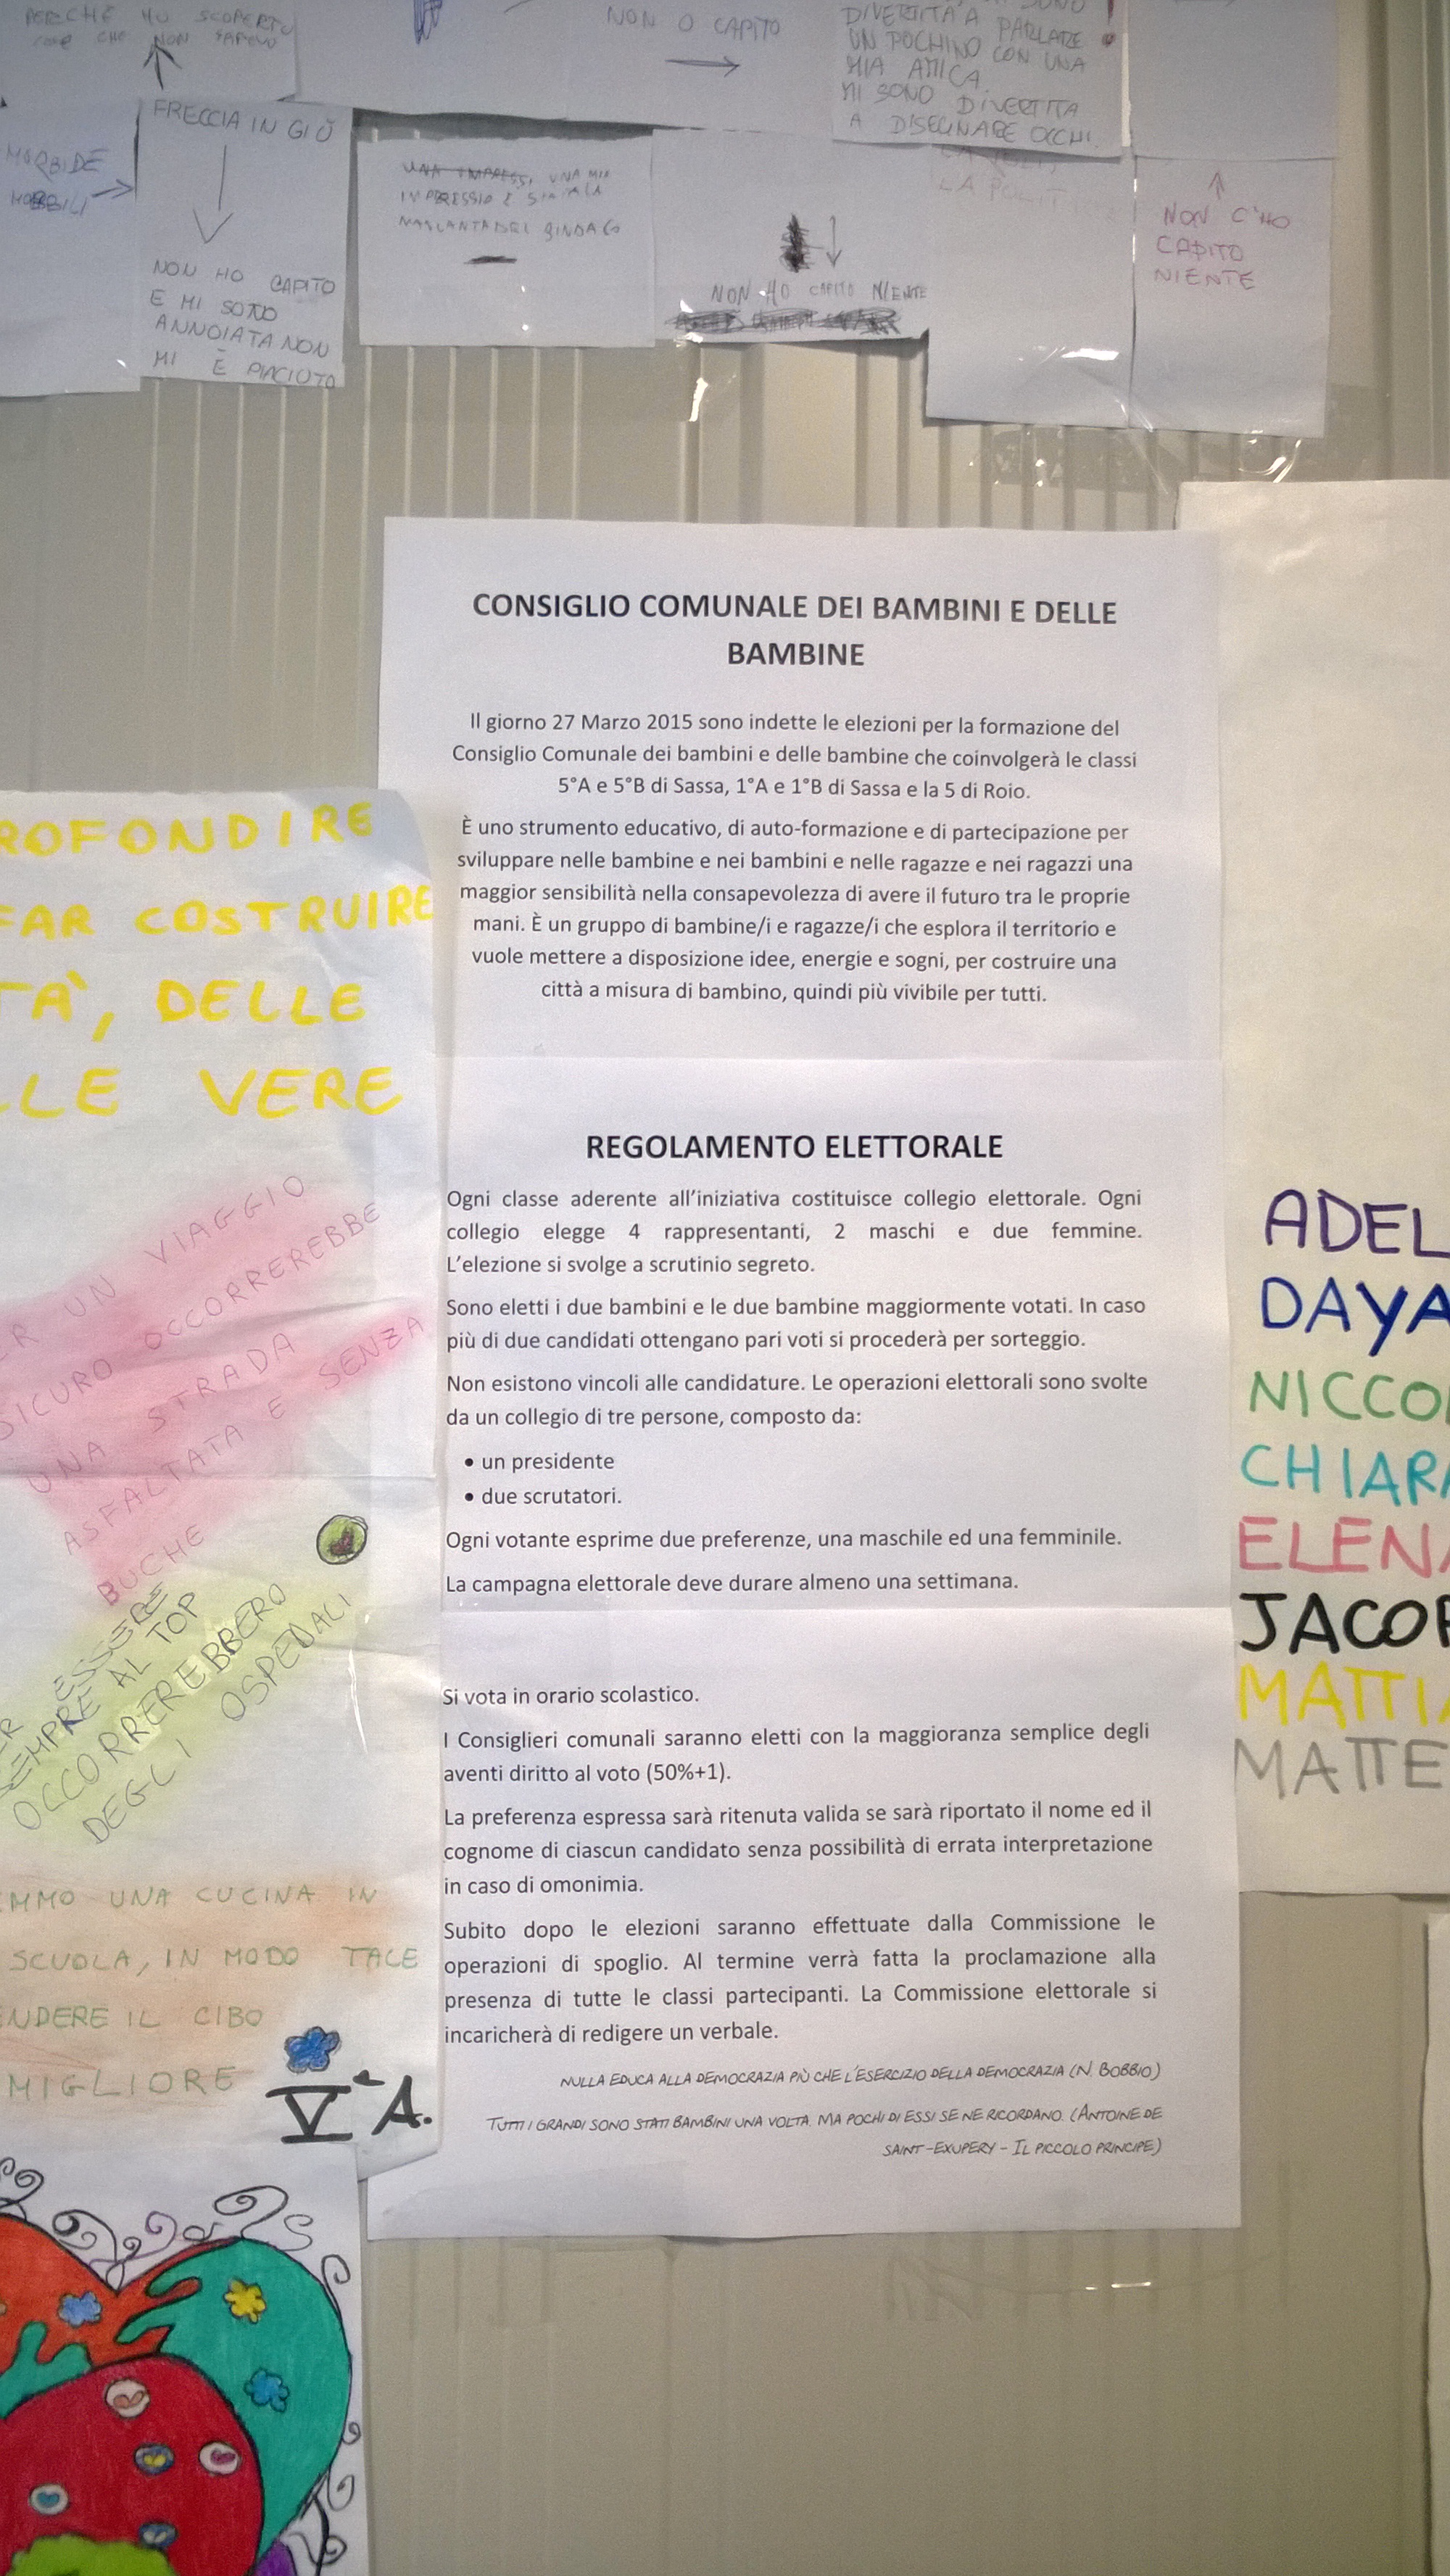 PERCHÉ HO SCOPERTO
COSE CHE NON SAPEVO
NON O CAPITO
DIVERTITA A PARLARE
UN POCHINO CON UNA
MIA AMICA.
MI SONO DIVERTITA
A DISEGNARE OCCHI.
FRECCIA IN GIÙ
MORBIDE
NON HO CAPITO
E MI SONO
ANNOIATA NON
MI È PIACIUTO
UNA MIA
NON HO CAPITO NIENTE
LA POLIT
NON C'HO
CAPITO
NIENTE
CONSIGLIO COMUNALE DEI BAMBINI E DELLE
BAMBINE
Il giorno 27 Marzo 2015 sono indette le elezioni per la formazione del
Consiglio Comunale dei bambini e delle bambine che coinvolgerà le classi
5°A e 5°B di Sassa, 1°A e 1°B di Sassa e la 5 di Roio.
È uno strumento educativo, di auto-formazione e di partecipazione per
sviluppare nelle bambine e nei bambini e nelle ragazze e nei ragazzi una
maggior sensibilità nella consapevolezza di avere il futuro tra le proprie
mani. È un gruppo di bambine/i e ragazze/i che esplora il territorio e
vuole mettere a disposizione idee, energie e sogni, per costruire una
città a misura di bambino, quindi più vivibile per tutti.
REGOLAMENTO ELETTORALE
Ogni classe aderente all'iniziativa costituisce collegio elettorale. Ogni
collegio elegge 4 rappresentanti, 2 maschi e due femmine.
L'elezione si svolge a scrutinio segreto.
Sono eletti i due bambini e le due bambine maggiormente votati. In caso
più di due candidati ottengano pari voti si procederà per sorteggio.
Non esistono vincoli alle candidature. Le operazioni elettorali sono svolte
da un collegio di tre persone, composto da:
• un presidente
• due scrutatori.
Ogni votante esprime due preferenze, una maschile ed una femminile.
La campagna elettorale deve durare almeno una settimana.
Si vota in orario scolastico.
I Consiglieri comunali saranno eletti con la maggioranza semplice degli
aventi diritto al voto (50%+1).
La preferenza espressa sarà ritenuta valida se sarà riportato il nome ed il
cognome di ciascun candidato senza possibilità di errata interpretazione
in caso di omonimia.
Subito dopo le elezioni saranno effettuate dalla Commissione le
operazioni di spoglio. Al termine verrà fatta la proclamazione alla
presenza di tutte le classi partecipanti. La Commissione elettorale si
incaricherà di redigere un verbale.
NULLA EDUCA ALLA DEMOCRAZIA PIÙ CHE L'ESERCIZIO DELLA DEMOCRAZIA (N. BOBBIO)
TUTTI I GRANDI SONO STATI BAMBINI UNA VOLTA. MA POCHI DI ESSI SE NE RICORDANO. (ANTOINE DE
SAINT-EXUPERY - IL PICCOLO PRINCIPE)
ROFONDIRE
FAR COSTRUIRE
TÀ, DELLE
LLE VERE
ER UN VIAGGIO
SICURO OCCORREREBBE
UNA STRADA
ASFALTATA E SENZA
BUCHE
ER ESSERE
SEMPRE AL TOP
OCCORREREBBERO
DEGLI OSPEDALI
EMMO UNA CUCINA IN
SCUOLA, IN MODO TALE
ENDERE IL CIBO
MIGLIORE
Vª A.
ADEL
DAYA
NICCO
CHIARA
ELENA
JACOP
MATTIA
MATTE